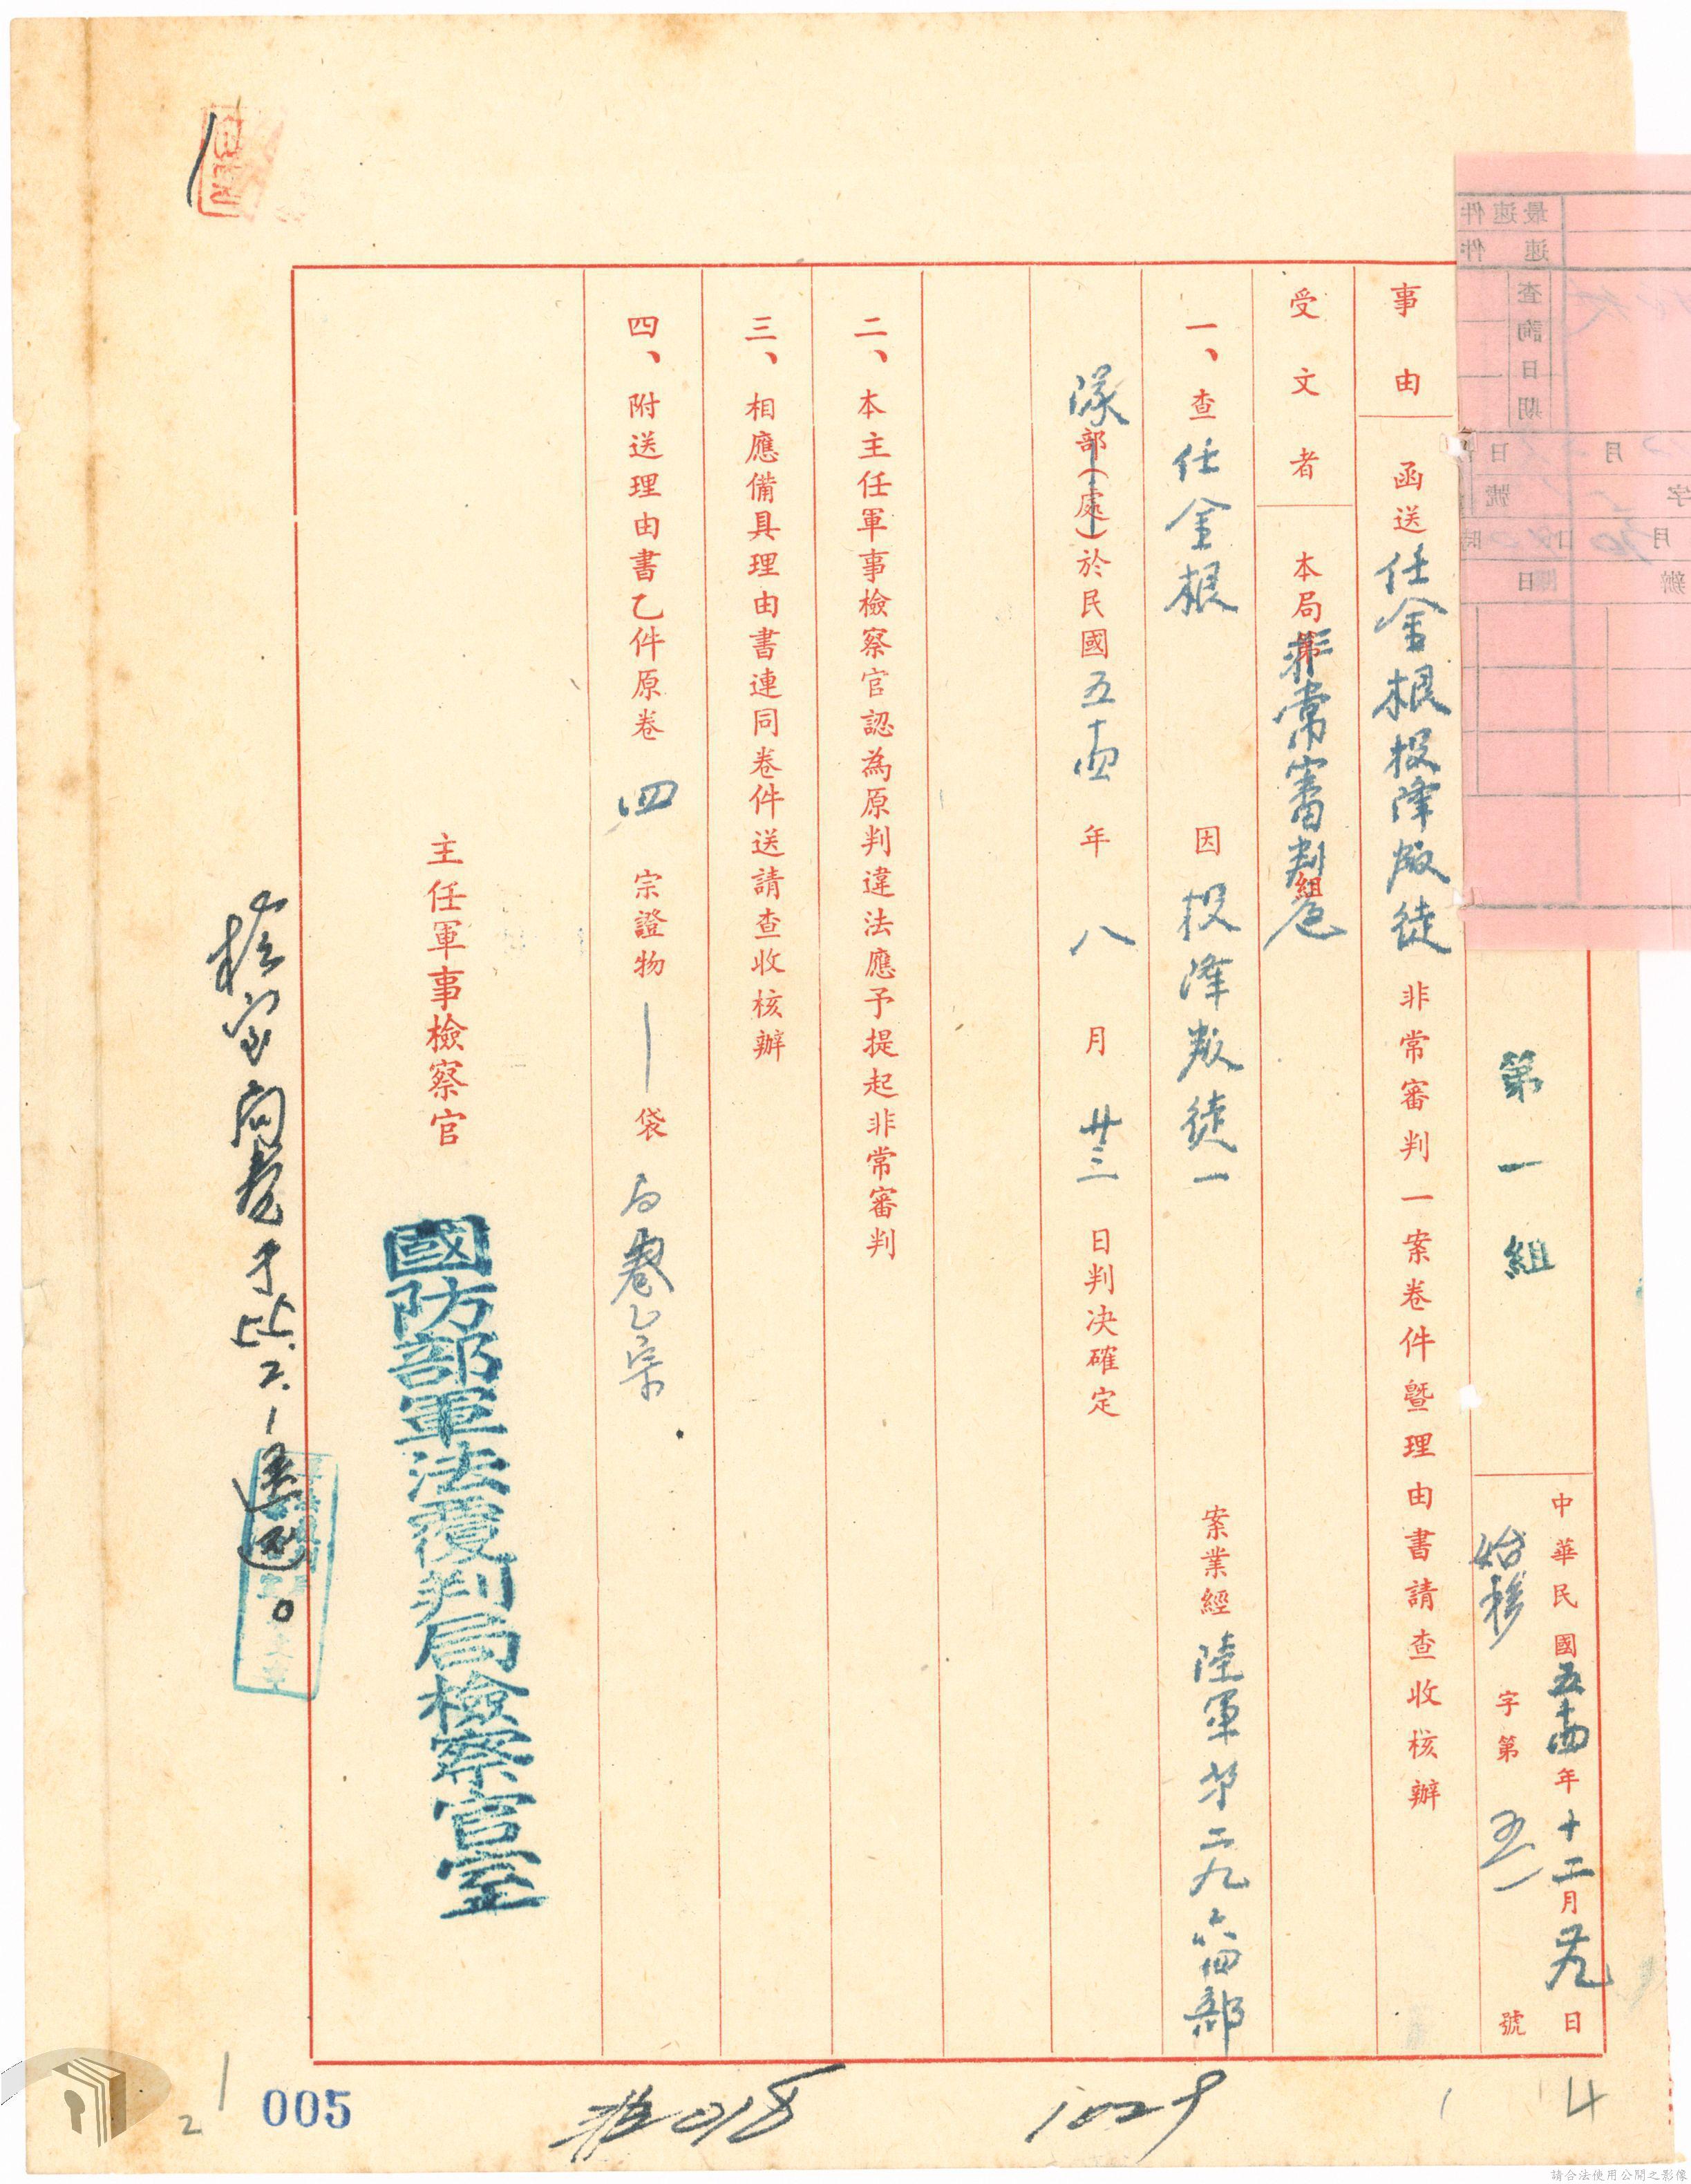 中華民國五十四年十二月廿九日
字第 五一 號
第一組
事由 函送任金根投降叛徒非常審判一案卷件暨理由書請查收核辦
受文者 本局非常審判庭
一、查任金根 因投降叛徒一 案業經 陸軍第二九六四部
隊部(處)於民國五十四年八月廿三日判決確定
二、本主任軍事檢察官認為原判違法應予提起非常審判
三、相應備具理由書連同卷件送請查收核辦
四、附送理由書乙件原卷四宗證物一袋 局卷乙宗
主任軍事檢察官
國防部軍法覆判局檢察官室
最速件
速件
查詢日期
005
1029
4
1
2
請合法使用公開之影像